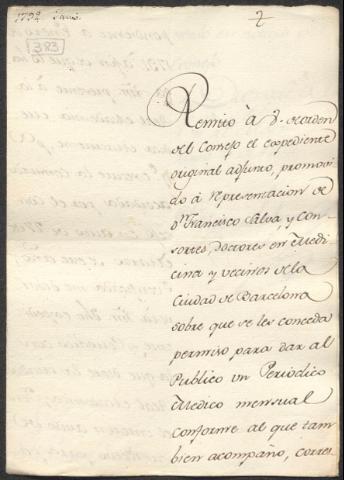 1792
2
383
Remito à V. de orden
del Consejo el expediente
original adjunto, promovi
do à representacion de
Dn. Francisco Salva, y Con-
sortes, doctores en Medi
cina y vecinos de la
Ciudad de Barcelona
sobre que se les conceda
permiso para dar al
Publico un Periodico
Medico mensual
conforme al que tam
bien acompaño, corres